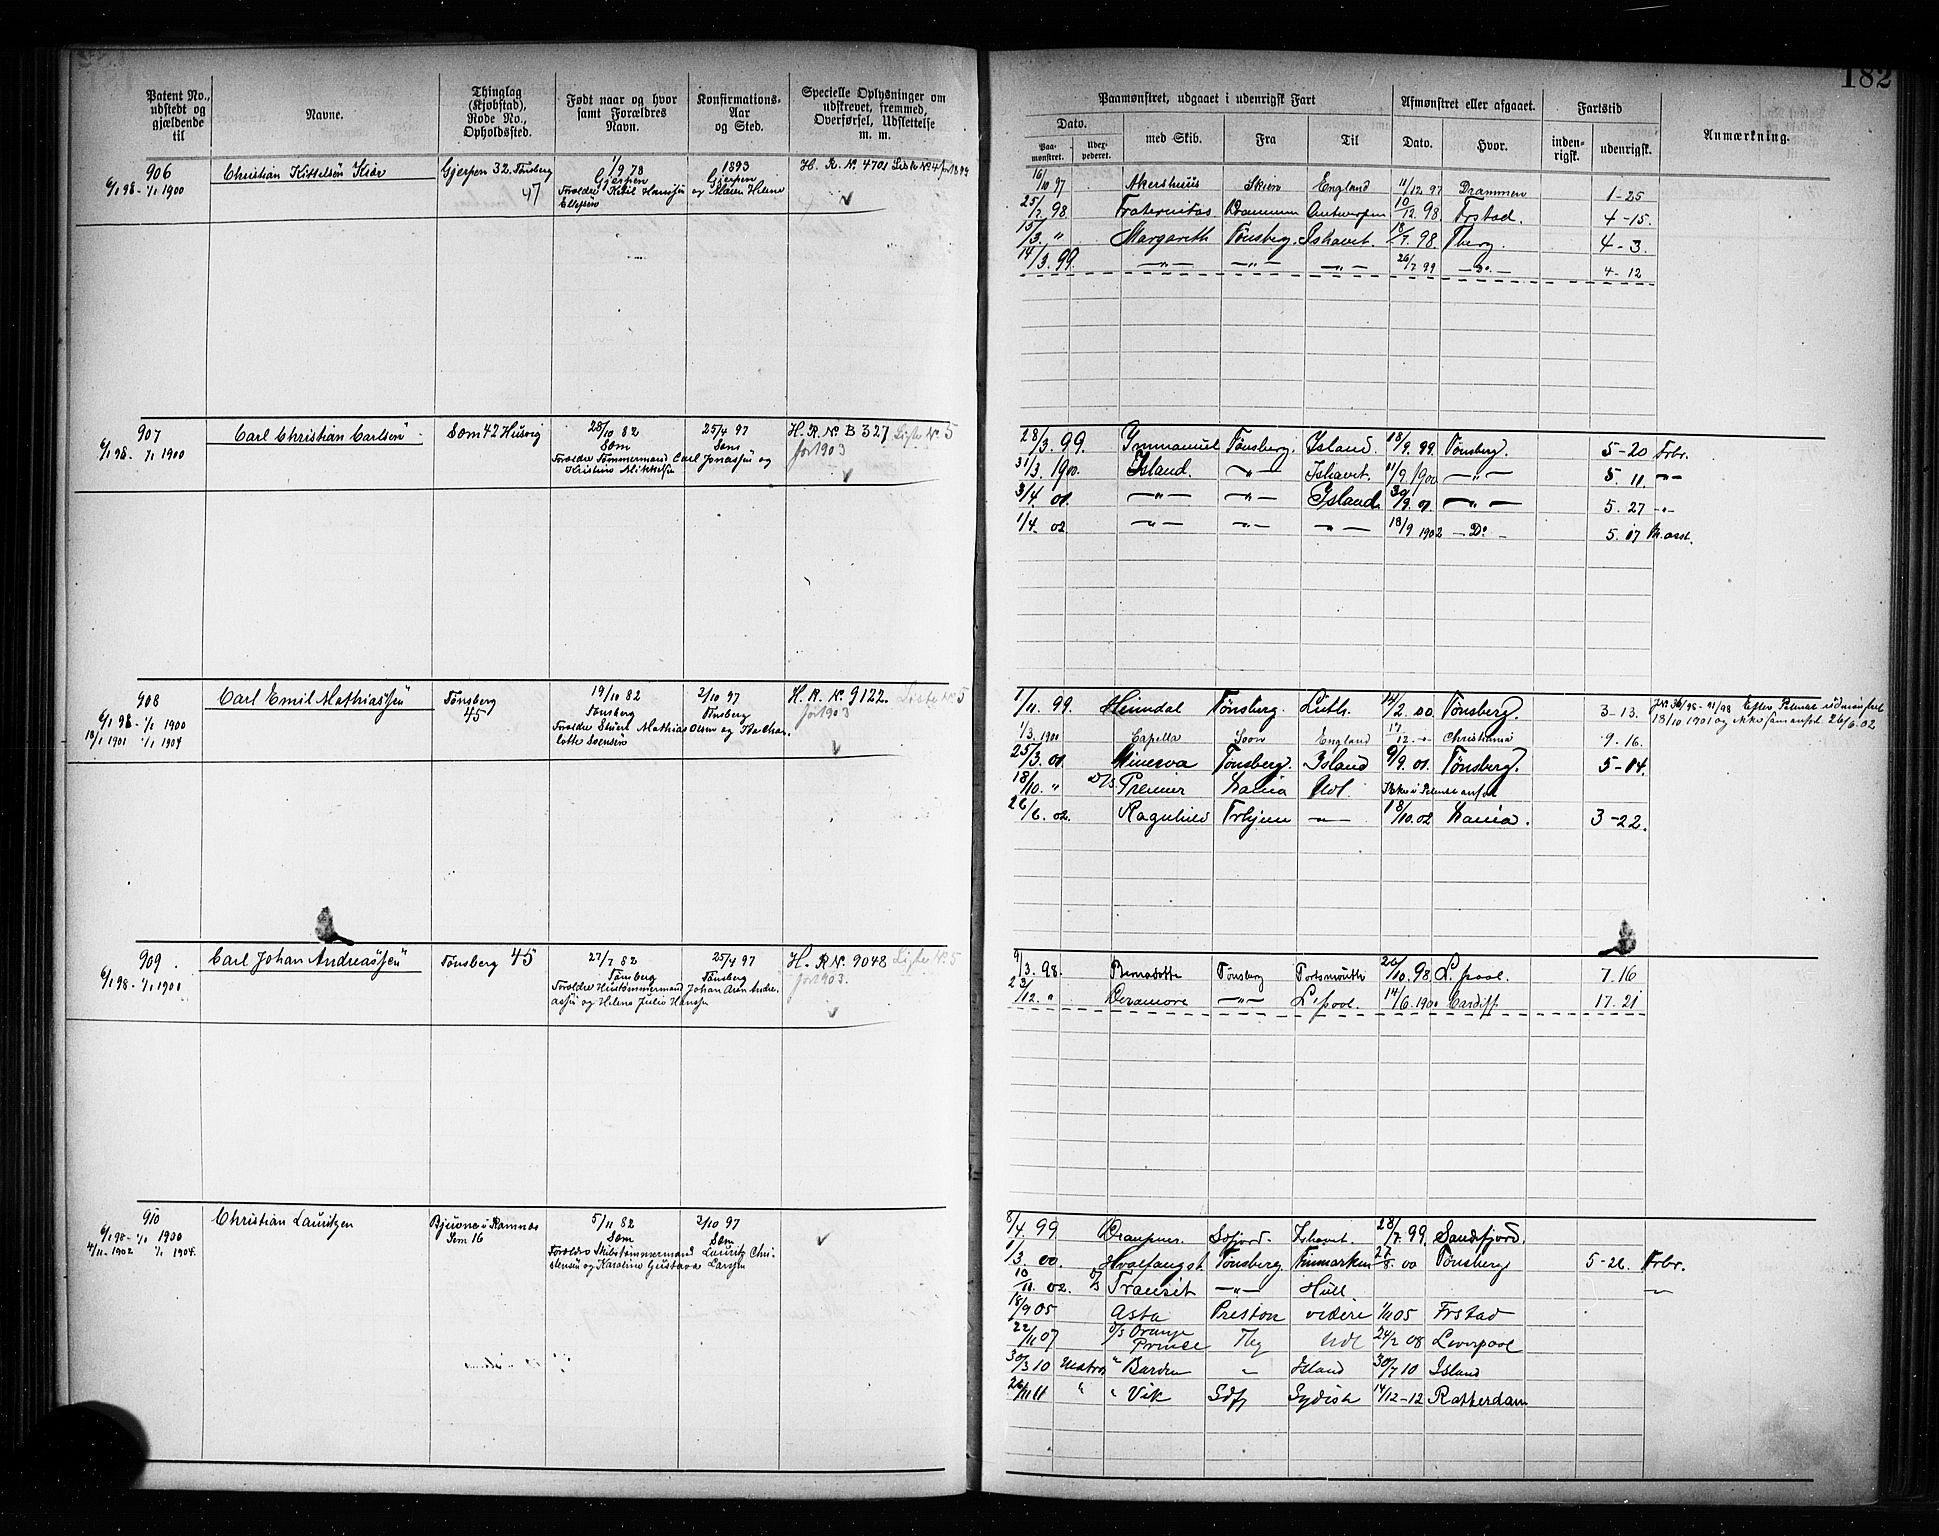 182
Patent No., udstedt og gjældende til
Navne.
Thinglag (Kjøbstad), Rode No., Opholdssted.
Født naar og hvor samt Forældres Navn.
Konfirmations-Aar og Sted.
Specielle Oplysninger om udskrevet, fremmed, Overførsel, Udslettelse m. m.
Paamønstret, udgaaet i udenrigsk Fart
Dato.
Paa-mønstret.
med Skib.
Fra
Til
Afmønstret eller afgaaet.
Dato.
Hvor.
Fartstid
inden-rigsk.
udenrigsk.
Anmærkning.
906
6/1 98 - 1/1 1900
Christian Kittelsen
Gjerpen 32. Tønsberg
47
1/9 78
Gjerpen
1893
Gjerpen
og Maren Helene
H. R. N. 4701 Liste N. 4 for 1899
16/10 97 Akershuus Skien England 11/12 97 Drammen 1-25
25/2 98 Fraternitas Drammen Antwerpen 10/12 98 Frstad. 4-15
15/3 " Margareth Tønsberg Ishavet. 18/7 98 Tberg. 4-3
14/3. 99 —"— —"— —"— 26/7 99 —D°— 4-12
907
6/1 98 - 1/1 1900
Carl Christian Carlsen
Sem 42 Husvig
28/10 82
Sem
25/4 97
Sem
Forældre Tømmermand Carl Jonassen og
Kristine Mikkelsen
H. R. N. B 327 Liste N. 5
for 1903
28/3. 99. Immanuel Tønsberg. Island. 18/9. 99. Tønsberg. 5-20 Frbr.
31/3. 1900. Island. —"— Ishavet. 11/9 1900 —"— 5. 11. —"—
3/4. 01. —"— —"— Island. 30/9. 01 —"— 5. 27 —"—
1/4. 02 —"— —"— —"— 18/9 1902 —D°— 5. 17
908
6/1 98 - 1/1 1900
18/1 1901 1/1 1904
Carl Emil Mathiassen
Tønsberg
45
19/10 82
Tønsberg
2/10 97
Tønsberg
Mathias Olsen og
lotte Svensen
H. R. N. 9122. Liste N. 5
for 1903
1/11. 99. Heimdal Tønsberg. Leith. 14/2. 00. Tønsberg. 3-13.
1/3. 1900 Capella Soon England 17/12. " Christiania 9. 16.
25/3. 01. Minerva Tønsberg. Island 9/9. 01. Tønsberg. 5-14.
18/10. " D/S. Premier Xania Udl.
26/6. 02. Ragnhild Frhjem —"— 18/10. 02 Xania. 3-22.
18/10 1901 og 26/6. 02
909.
6/1 98 - 1/1 1901
Carl Johan Andreassen
Tønsberg 45
27/7 82
Tønsberg
25/4 97
Tønsberg
Forældre Hustømmermand Johan Aron Andre-
assen og Helene Julie Hansen
H. R N. 9048 Liste N. 5
for 1903.
9/3. 98. Bernadotte Tønsberg Portsmouth 26/10. 98 L.pool. 7. 16
23/12. " Deramore —"— L.pool. 14/6. 1900 Cardiff 17. 21
910
6/1 98 - 1/1 1900
4/11-1902 1/1 1904.
Christian Lauritzen
Bjerone i Ramnes
Sem 16
5/11 82
Sem
2/10 97
Sem
Forældre Skibstømmermand Lauritz Chri-
stensen og Karoline Gustava Larsen
8/4. 99 Draupner. Sdfjord. Ishavet. 28/7. 99. Sandefjord.
1/3. 00. Hvalfangst. Tønsberg Finmarken 27/8. 00 Tønsberg 5-26 Frbr.
10/11. 02. D/S Transit —"— Hull. —"—
18/9 05 Asta Preston videre 1/11 05 Frstad
22/11 07 D/S Orange Prince Tbg Udl 24/2 08 Liverpool
30/3 10 Matros " Barden " Island 30/7 10 Island
26/11 11 " " Vik Sdfj Sydish 14/12-12 Rotterdam